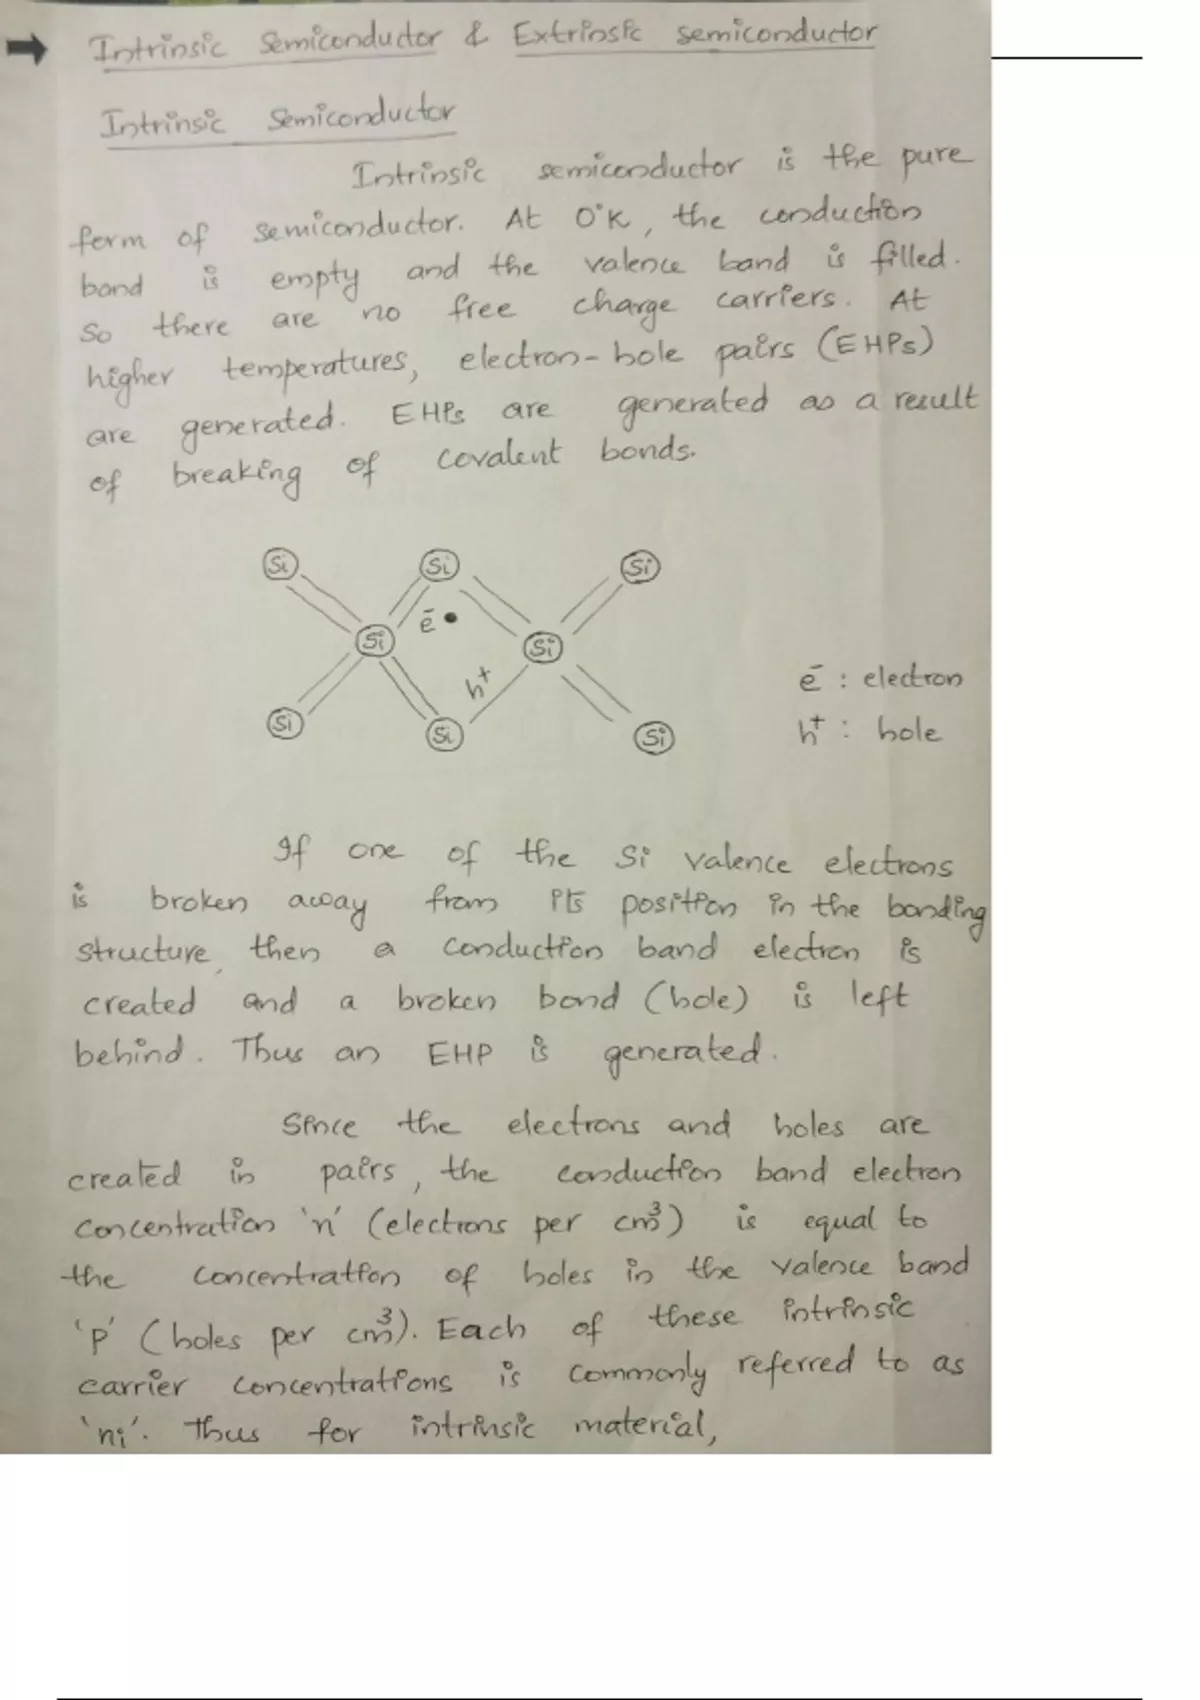 Intrinsic Semiconductor & Extrinsic semiconductor
Intrinsic Semiconductor
Intrinsic semiconductor is the pure
form of semiconductor. At 0°K, the conduction
band is empty and the valence band is filled.
So there are no free charge carriers. At
higher temperatures, electron-hole pairs (EHPs)
are generated. EHPs are generated as a result
of breaking of covalent bonds.
Si Si Si
e⁻
Si Si
h⁺
e⁻ : electron
Si Si Si
h⁺ : hole
If one of the Si valence electrons
is broken away from its position in the bonding
structure, then a conduction band electron is
created and a broken bond (hole) is left
behind. Thus an EHP is generated.
Since the electrons and holes are
created in pairs, the conduction band electron
concentration 'n' (electrons per cm³) is equal to
the concentration of holes in the valence band
'p' (holes per cm³). Each of these intrinsic
carrier concentrations is commonly referred to as
'ni'. Thus for intrinsic material,